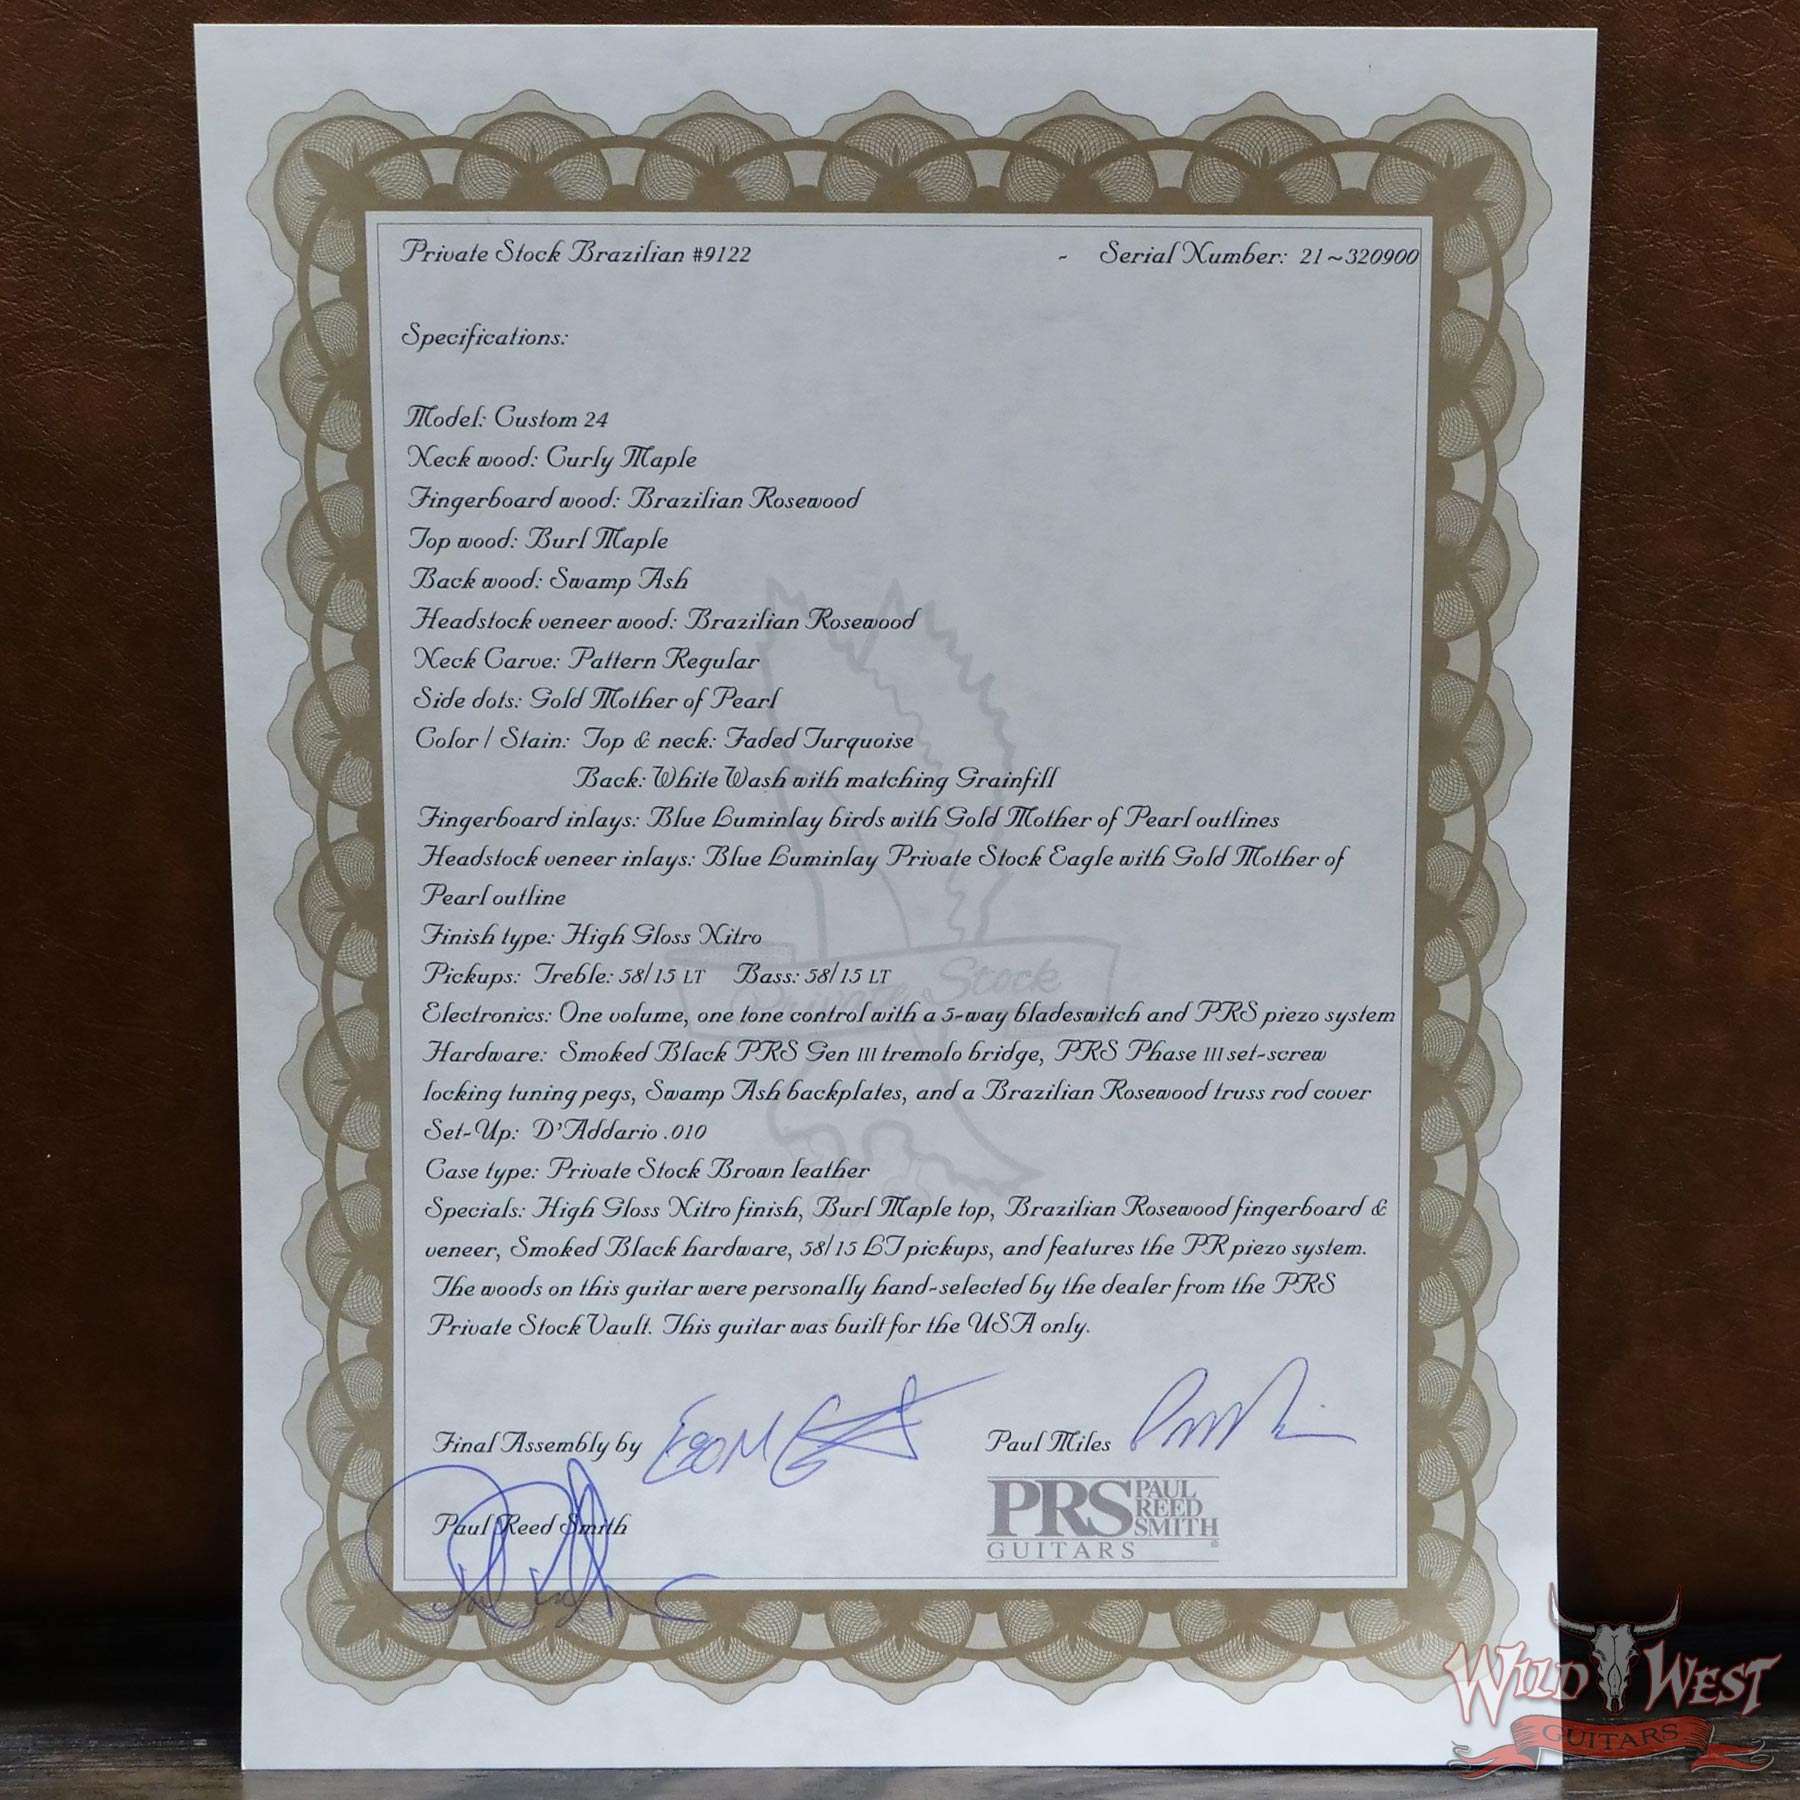 Private Stock Brazilian #9122 - Serial Number: 21~320900
Specifications:
Model: Custom 24
Neck wood: Curly Maple
Fingerboard wood: Brazilian Rosewood
Top wood: Burl Maple
Back wood: Swamp Ash
Headstock veneer wood: Brazilian Rosewood
Neck Carve: Pattern Regular
Side dots: Gold Mother of Pearl
Color / Stain: Top & neck: Faded Turquoise
Back: White Wash with matching Grainfill
Fingerboard inlays: Blue Luminlay birds with Gold Mother of Pearl outlines
Headstock veneer inlays: Blue Luminlay Private Stock Eagle with Gold Mother of
Pearl outline
Finish type: High Gloss Nitro
Pickups: Treble: 58/15 LT Bass: 58/15 LT
Private Stock
Electronics: One volume, one tone control with a 5-way bladeswitch and PRS piezo system
Hardware: Smoked Black PRS Gen III tremolo bridge, PRS Phase III set-screw
locking tuning pegs, Swamp Ash backplates, and a Brazilian Rosewood truss rod cover
Set-Up: D'Addario .010
Case type: Private Stock Brown leather
Specials: High Gloss Nitro finish, Burl Maple top, Brazilian Rosewood fingerboard &
veneer, Smoked Black hardware, 58/15 LT pickups, and features the PR piezo system.
The woods on this guitar were personally hand-selected by the dealer from the PRS
Private Stock Vault. This guitar was built for the USA only.
Final Assembly by
Paul Miles
Paul Reed Smith
PRS PAUL REED SMITH
GUITARS
WILD WEST
GUITARS